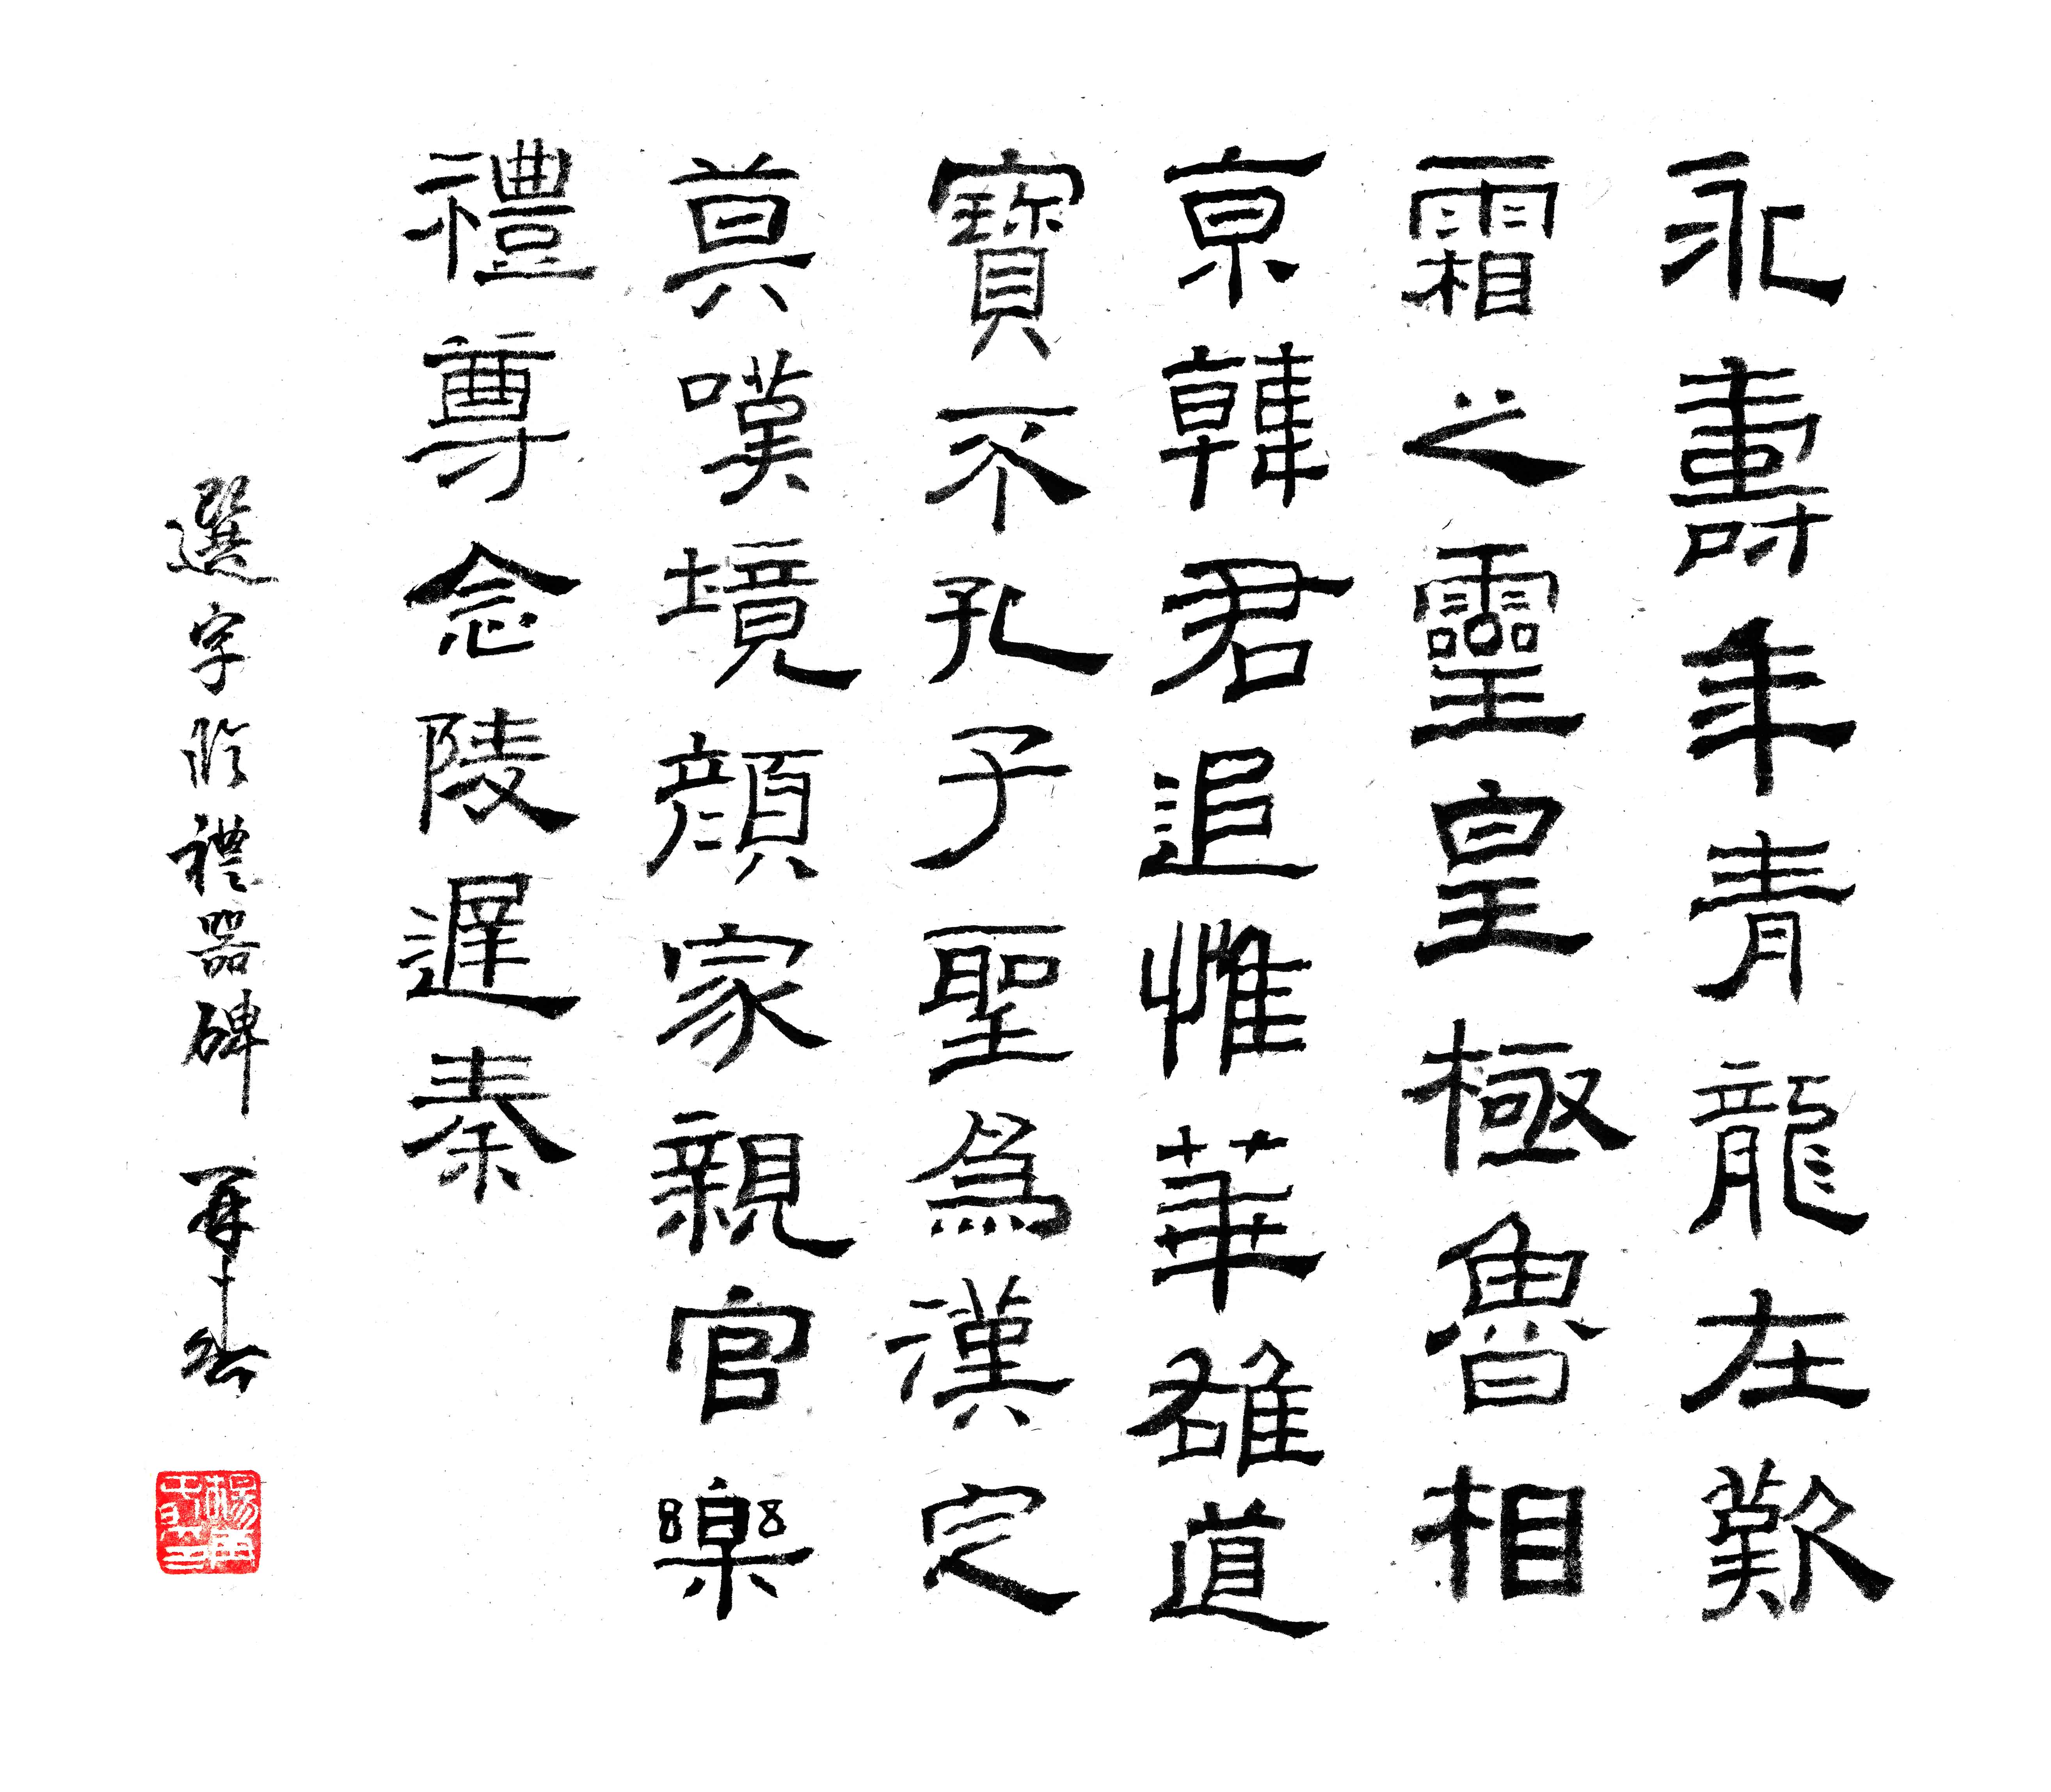 永壽年青龍在歎
霜之靈皇極魯相
京韓君追惟華雄道
寶不孔子聖爲漢定
莫嘆境顏家親官樂
禮尊念陵遲秦
選字臨禮器碑 再春